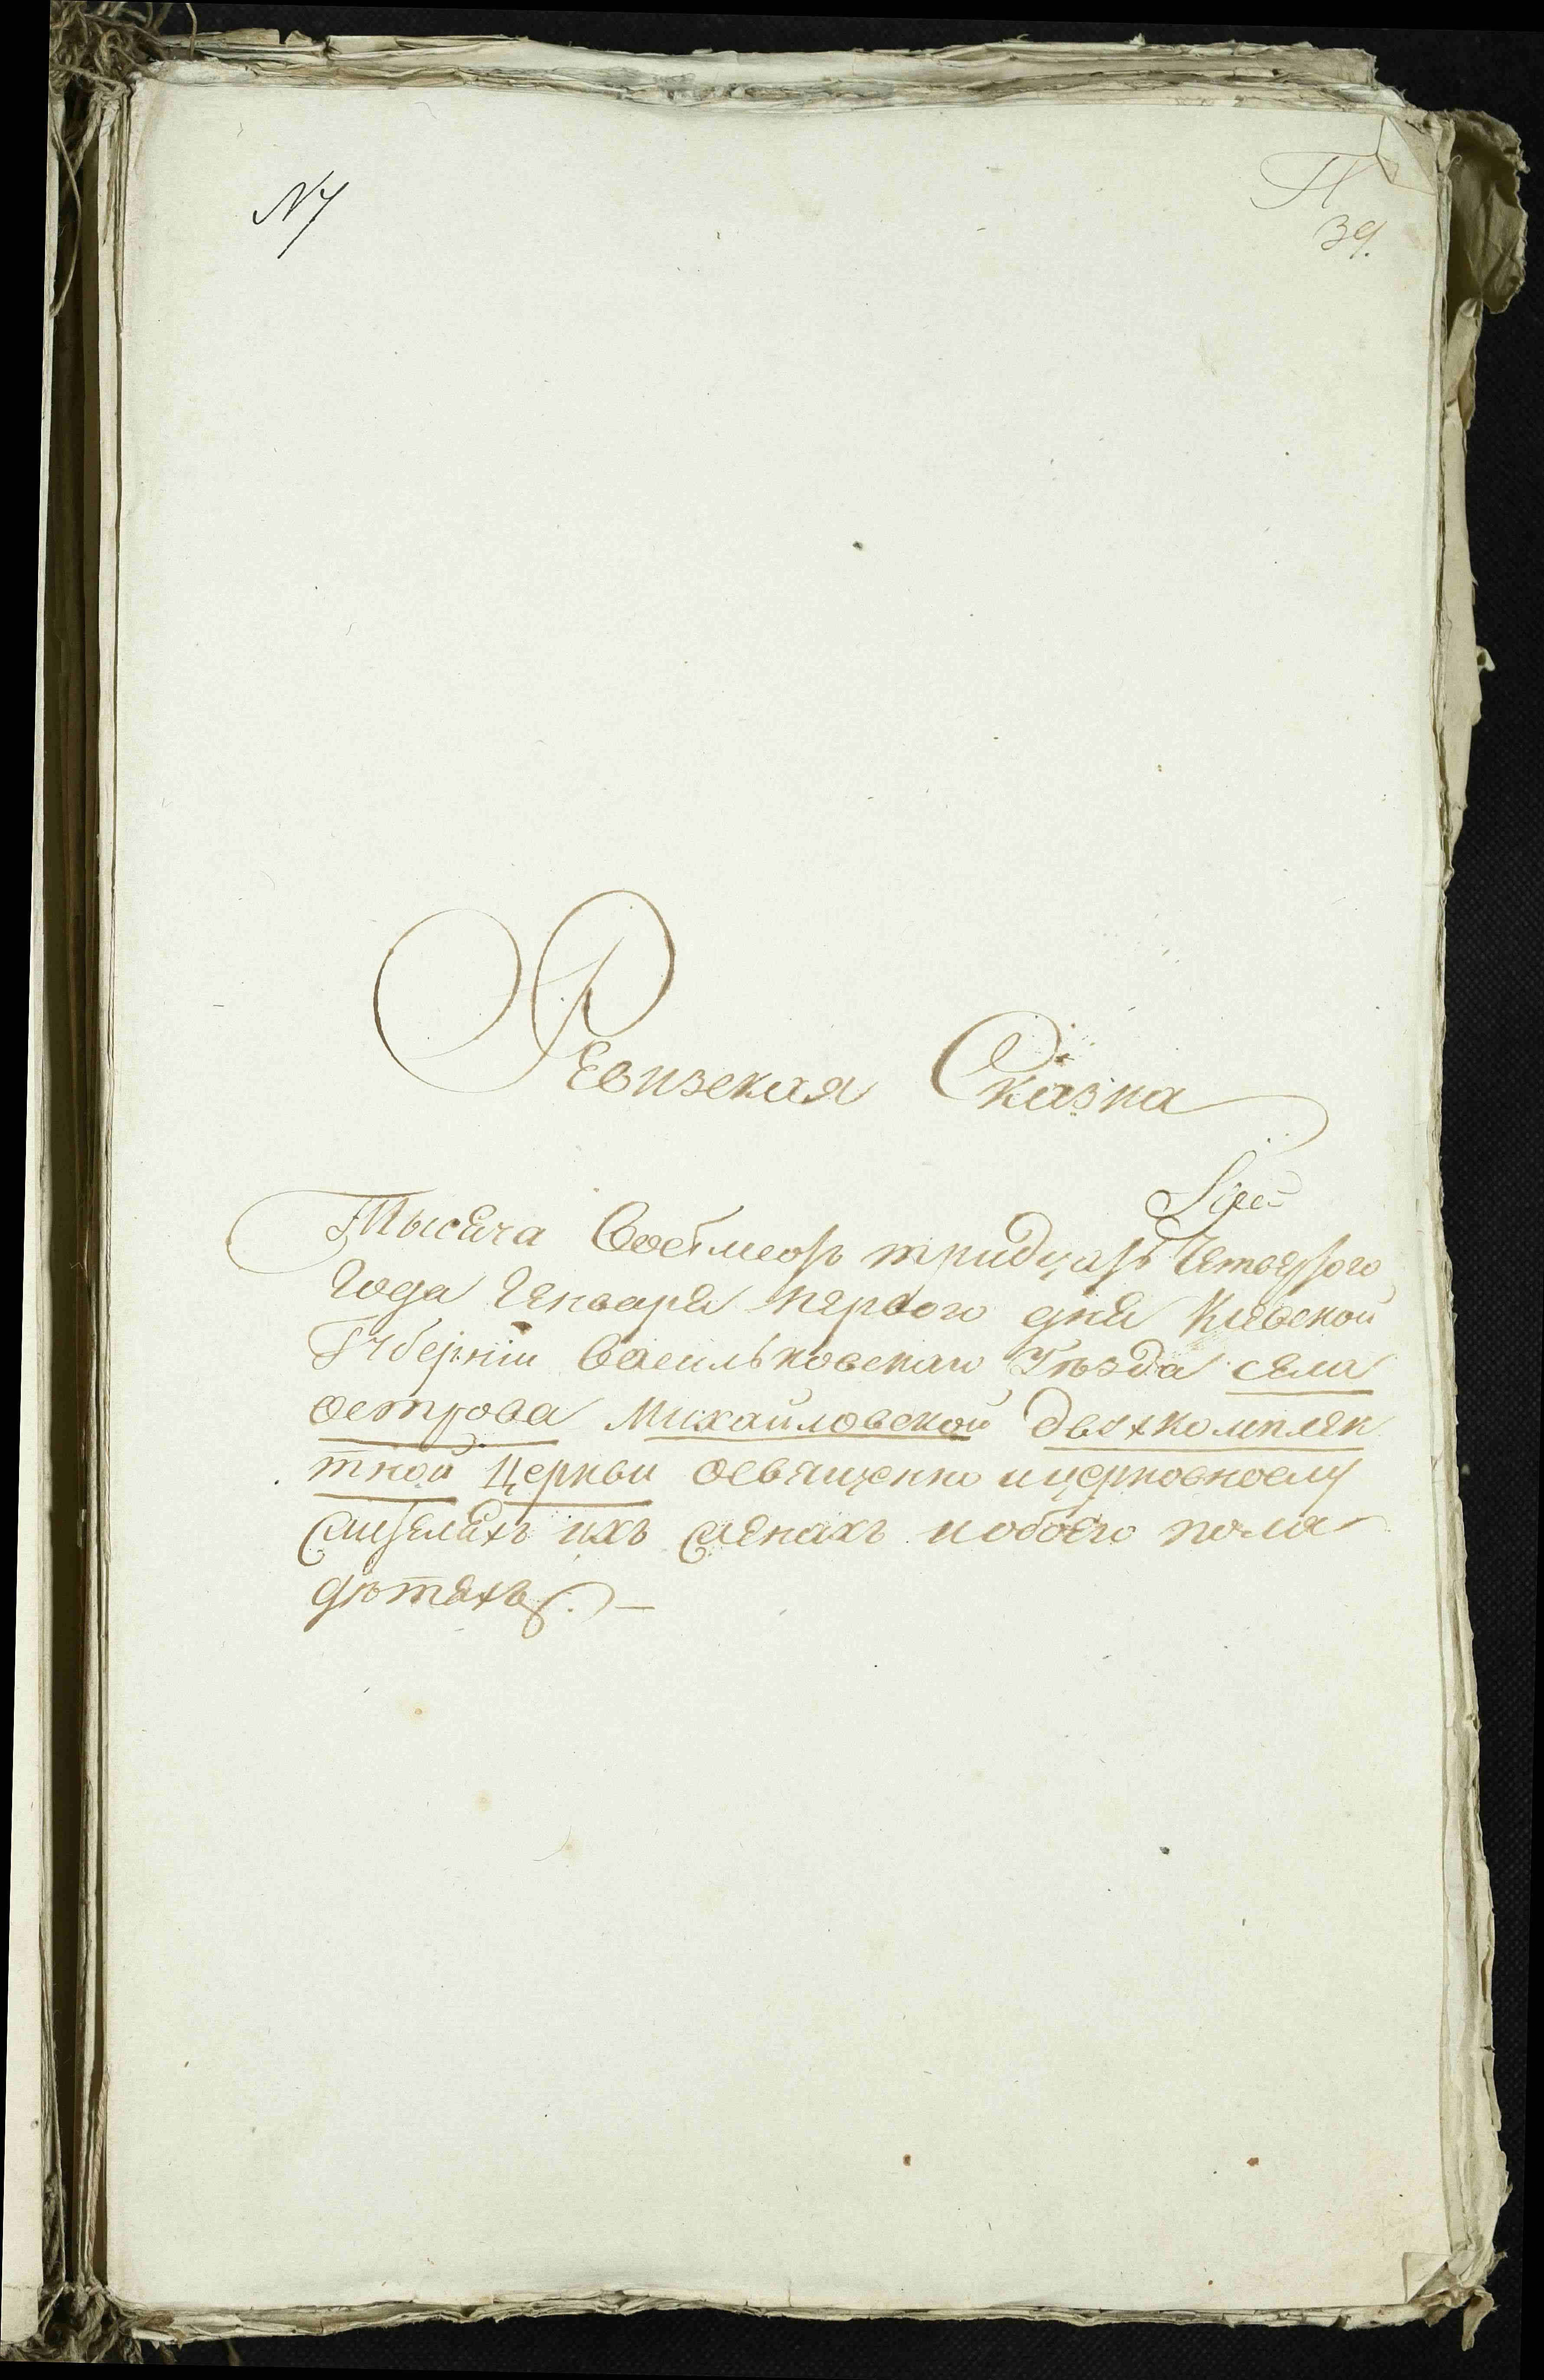 N 7
39.
Ревизская Сказка
Тысяча Восемсотъ тридцать Четвертого
Года Генваря первого дня Киевской
Губерніи Васильковскаго Уѣзда села
острова Михайловской двухкомплек
тной Церкви освященно ицерковнослу
жителяхъ ихъ женахъ иобоего пола
дѣтяхъ. —